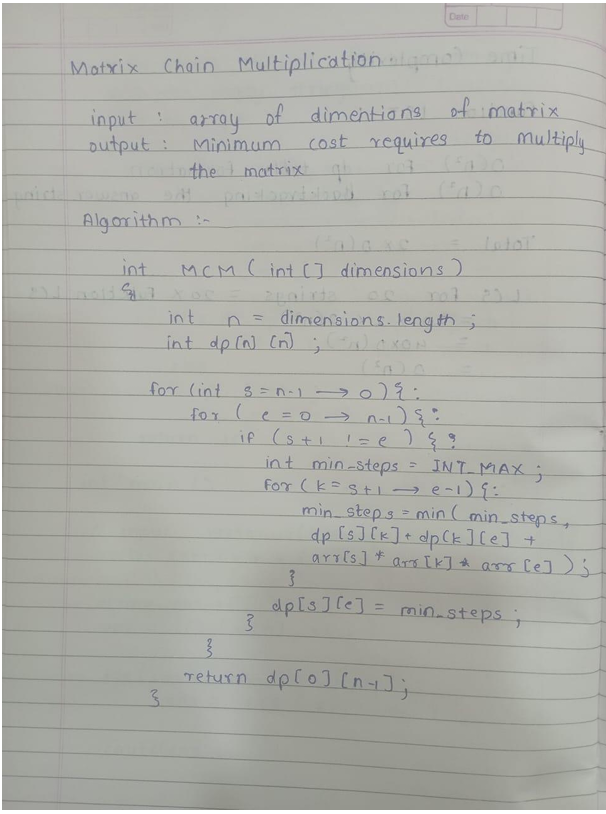 Date
Matrix Chain Multiplication
input : array of dimentions of matrix
output : Minimum cost requires to multiply
the matrix
Algorithm :-
int MCM ( int [] dimensions )
{
int n = dimensions.length ;
int dp [n] [n] ;
for (int s = n-1 → 0 ) { :
for ( e = 0 → n-1 ) { :
if ( s + 1 != e ) { :
int min_steps = INT_MAX ;
for ( k = s+1 → e-1 ) { :
min_steps = min ( min_steps,
dp [s] [k] + dp [k] [e] +
arr[s] * arr [k] * arr [e] ) ;
}
dp [s] [e] = min_steps ;
}
}
return dp [0] [n-1] ;
}